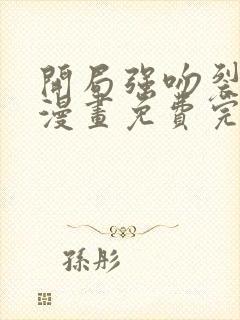 開局強吻裂
漫畫免費完
孫彤